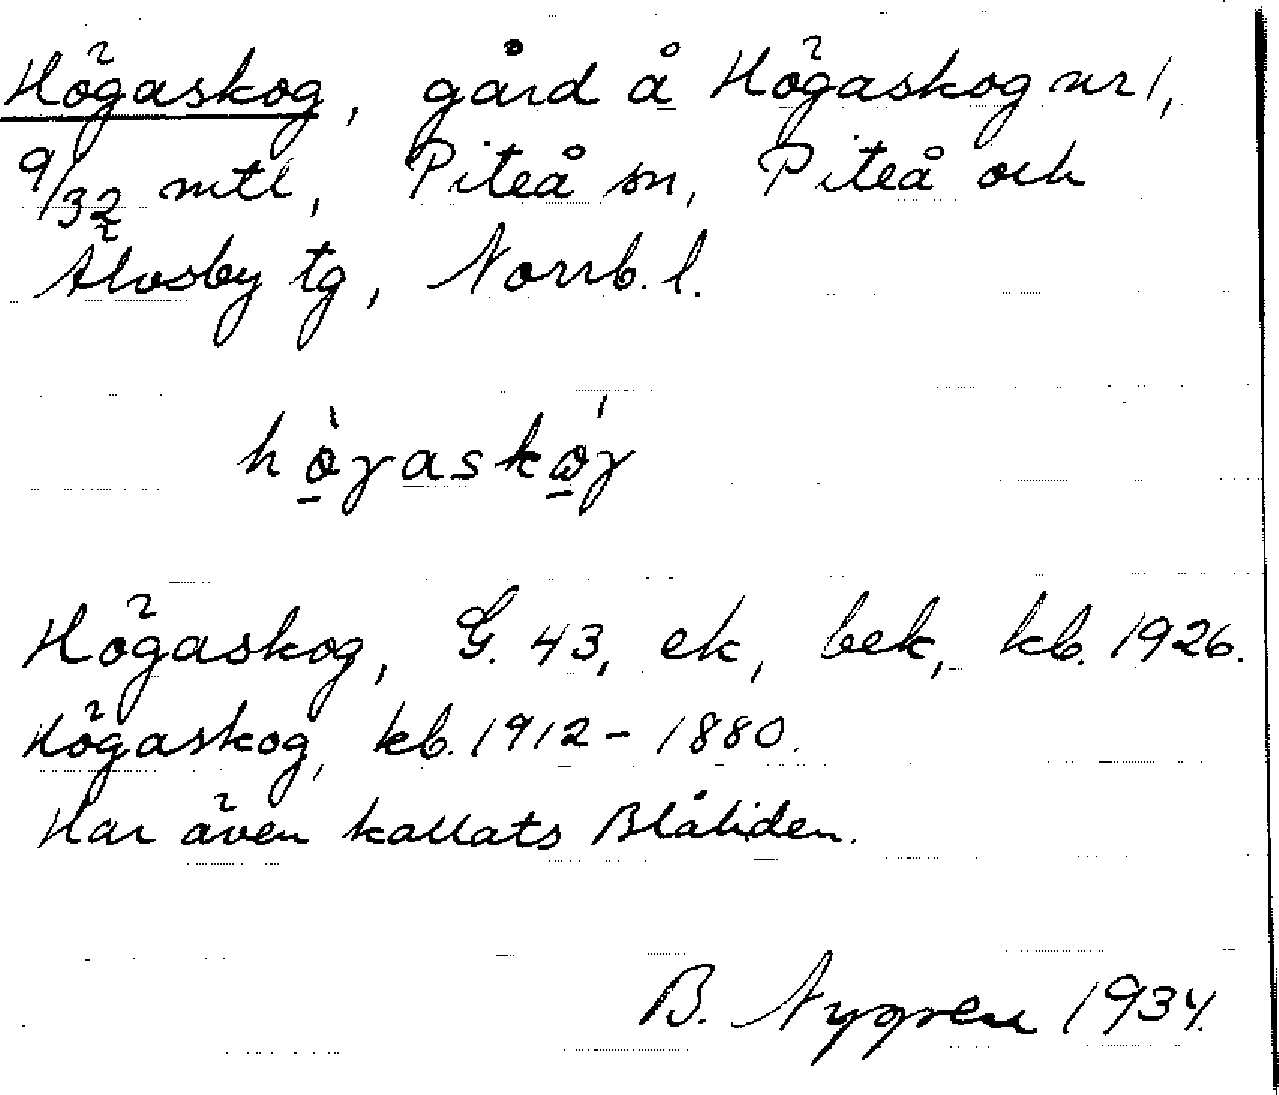 Högaskog, gård å Högaskog nr 1,
9/32 mtl, Piteå sn, Piteå och
Älvsby tg, Norrb. l.
hògaskóg
Högaskog, G. 43, ek, bek, kb. 1926.
Högaskog, kb. 1912 - 1880.
Har även kallats Blåliden.
B. Nygren 1934.